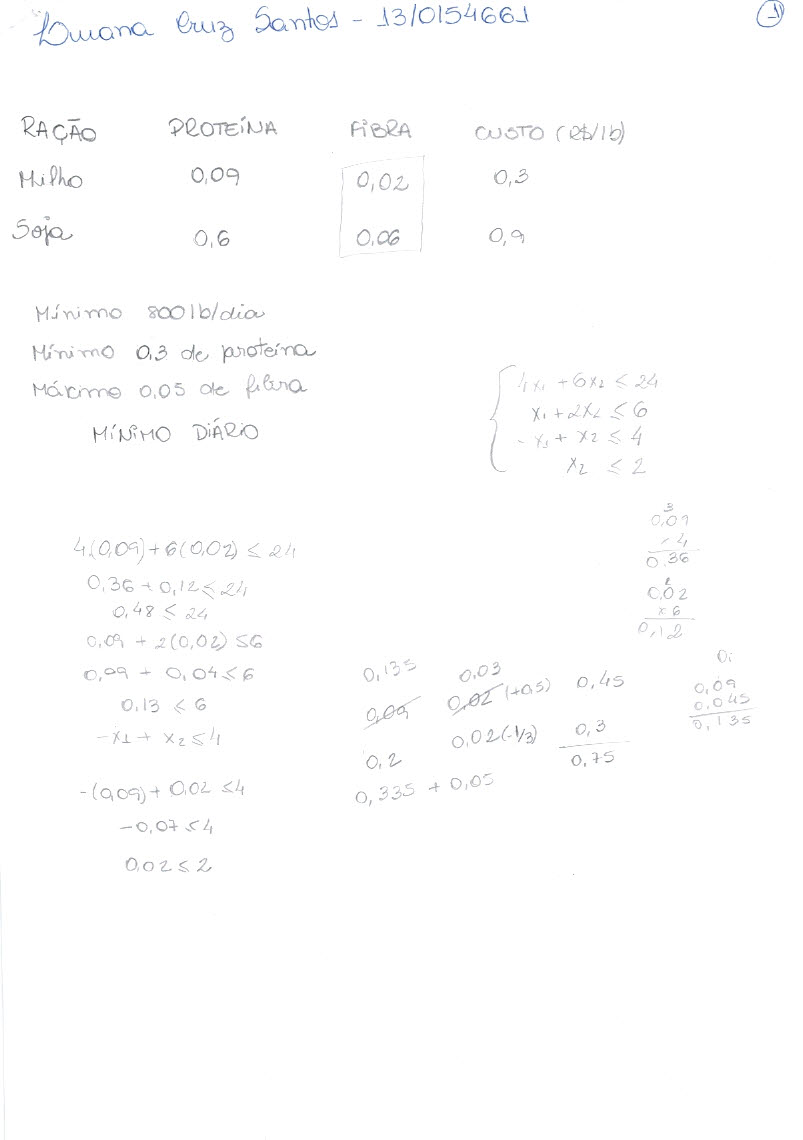 Luuana Cruz Santos - 13/0154661
1
RAÇÃO PROTEÍNA FIBRA CUSTO (R$/lb)
Milho 0,09 0,02 0,3
Soja 0,6 0,06 0,9
Mínimo 800 lb/dia
Mínimo 0,3 de proteína
Máximo 0,05 de fibra
MÍNIMO DIÁRIO
4x₁ + 6x₂ ≤ 24
x₁ + 2x₂ ≤ 6
-x₁ + x₂ ≤ 4
x₂ ≤ 2
4(0,09) + 6(0,02) ≤ 24
0,36 + 0,12 ≤ 24
0,48 ≤ 24
0,09 + 2(0,02) ≤ 6
0,09 + 0,04 ≤ 6
0,13 ≤ 6
-x₁ + x₂ ≤ 4
-(0,09) + 0,02 ≤ 4
-0,07 ≤ 4
0,02 ≤ 2
3
0,09
4
0,36
0,02
x 6
0,12
0,135 0,03
0,09 0,02 (+0,5) 0,45
0,02 (-1/3) 0,3
0,2 0,75
0,335 + 0,05
0,09
0,045
0,135